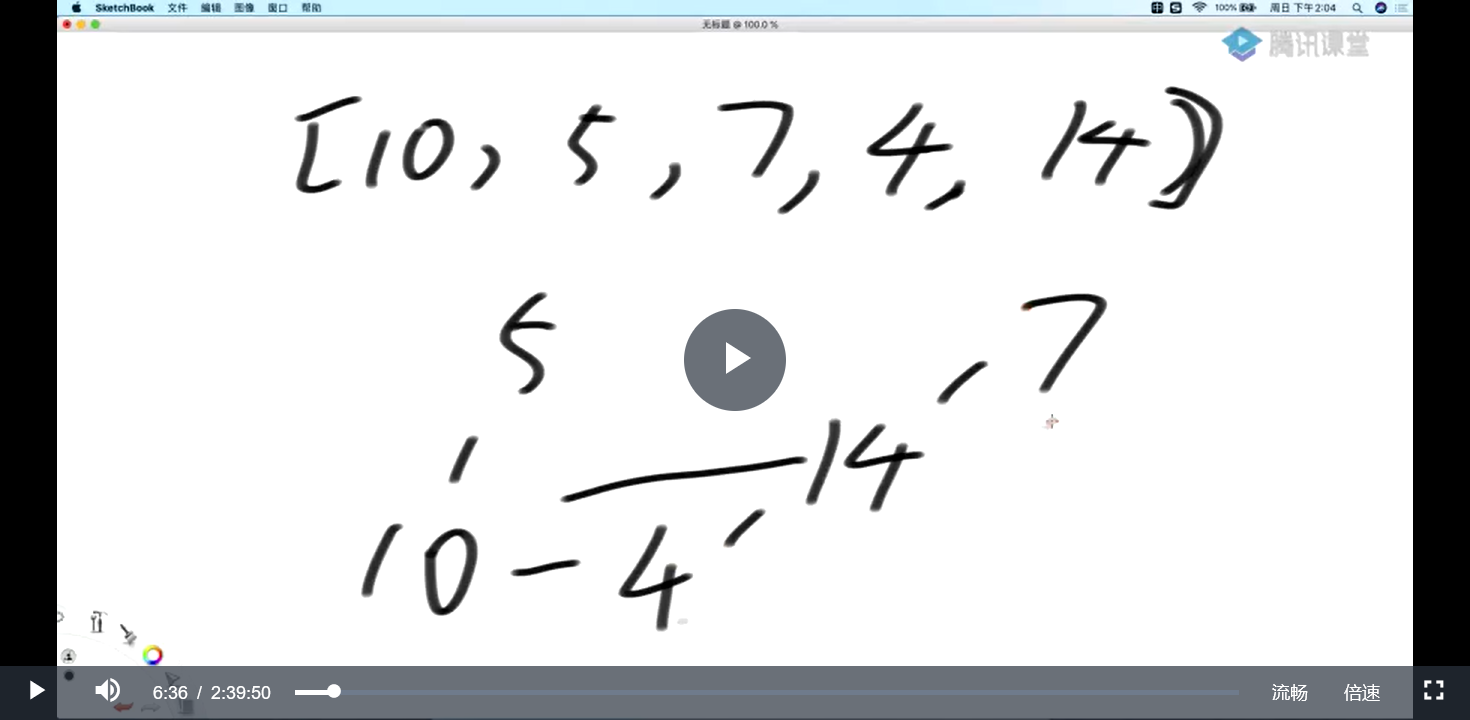 SketchBook 文件 编辑 图像 窗口 帮助 100% 周日 下午2:04
无标题 @ 100.0 %
腾讯课堂
[10, 5, 7, 4, 14]
5 7
14
10 - 4
6:36 / 2:39:50 流畅 倍速